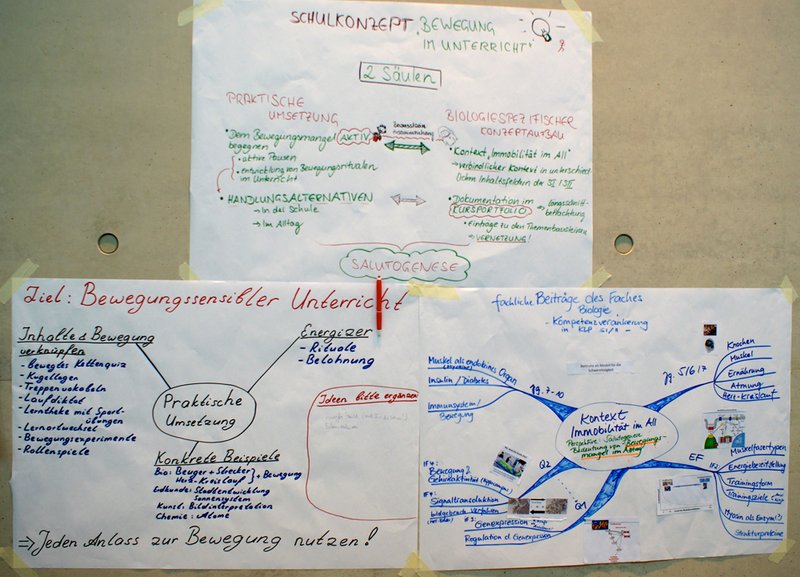 SCHULKONZEPT „BEWEGUNG
IM UNTERRICHT“
2 Säulen
PRAKTISCHE
UMSETZUNG
• Dem Bewegungsmangel AKTIV
begegnen
• aktive Pausen
• Entwicklung von Bewegungsritualen
im Unterricht
• HANDLUNGSALTERNATIVEN
→ In der Schule
→ Im Alltag
BIOLOGIESPEZIFISCHER
KONZEPTAUFBAU
• Kontext „Immobilität im All“
→ verbindlicher Kontext in unterschied-
lichen Inhaltsfeldern der SI & SII
• Dokumentation im
KURSPORTFOLIO → Längsschnitt-
betrachtung
• Einträge zu den Themenbausteinen
→ VERNETZUNG!
SALUTOGENESE
Ziel: Bewegungssensibler Unterricht
Inhalte & Bewegung
verknüpfen
- bewegtes Kettenquiz
- Kugellager
- Treppenvokabeln
- Laufdiktat
- Lerntheke mit Sport-
übungen
- Lernortwechsel
- Bewegungsexperimente
- Rollenspiele
Energizer
- Rituale
- Belohnung
Praktische
Umsetzung
Ideen bitte ergänzen
Konkrete Beispiele
Bio: Beuger + Strecker
Herz-Kreislauf + Bewegung
Erdkunde: Stadtentwicklung
Sonnensystem
Kunst: Bildinterpretation
Chemie: Atome
⇒ Jeden Anlass zur Bewegung nutzen!
fachliche Beiträge des Faches
Biologie
- Kompetenzverankerung
in KLP SI/II -
Muskel als endokrines Organ
Insulin / Diabetes
Immunsystem /
Bewegung
Jg. 7-10
Jg. 5/6/7
Knochen
Muskel
Ernährung
Atmung
Herz-Kreislauf
Kontext
Immobilität im All
Perspektive: Salutogenese
Bedeutung von Bewegungs-
mangel im Alltag
EF
Muskelfasertypen
Energiebereitstellung
Trainingsform
Trainingsziele
Myosin als Enzym(?)
Strukturproteine
Q2
IF4:
Bewegung &
Gehirnaktivität
IF4:
Signaltransduktion
Q1
Genexpression
Regulation d. Genexpression